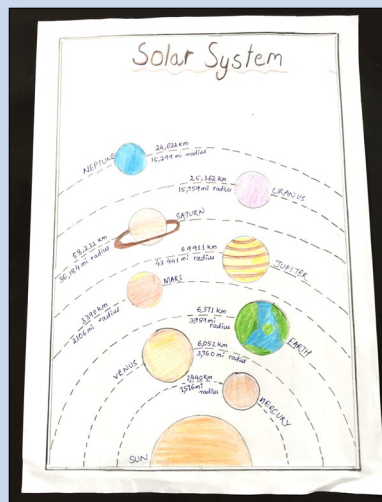 Solar System
NEPTUNE
24,622 km
15,299 mi radius
25,362 km
15,759 mi radius
URANUS
SATURN
58,232 km
36,184 mi radius
69,911 km
43,441 mi radius
JUPITER
MARS
3,390 km
2,106 mi radius
6,371 km
3,959 mi radius
EARTH
6,052 km
3,760 mi radius
VENUS
2,440 km
1,516 mi
radius
MERCURY
SUN